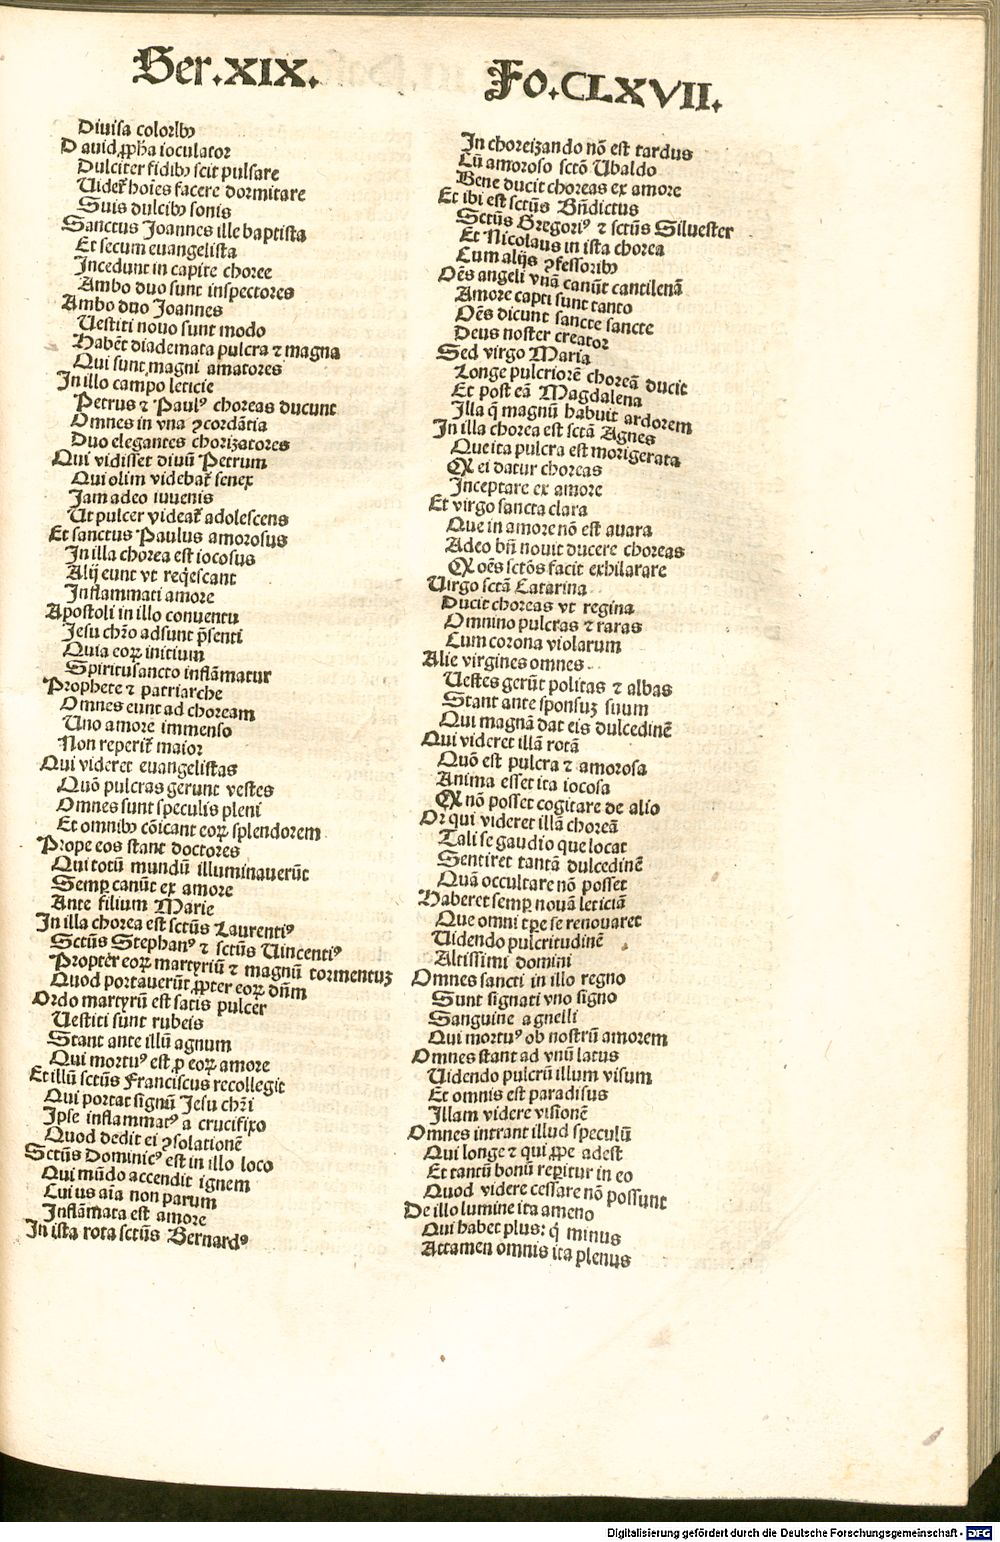 Ser.XIX.
Fo.CLXVII.
Diuisa coloribꝯ
Dauid ꝓpħa ioculator
Dulciter fidibꝯ scit pulsare
Uideť hoīes facere dormitare
Suis dulcibꝯ sonis
Sanctus Joannes ille baptista
Et secum euangelista
Incedunt in capite choree
Ambo duo sunt inspectores
Ambo duo Joannes
Uestiti nouo sunt modo
Habēt diademata pulcra ⁊ magna
Qui sunt magni amatores
In illo campo leticie
Petrus ⁊ Paulꝰ choreas ducunt
Omnes in vna ꝯcordātia
Duo elegantes chorizatores
Qui vidisset diuū Petrum
Qui olim videbať senex
Jam adeo iuuenis
Ut pulcer videať adolescens
Et sanctus Paulus amorosus
In illa chorea est iocosus
Alij eunt vt reqͥescant
Inflammati amore
Apostoli in illo conuentu
Jesu chr̄o adsunt p̄senti
Quia eoꝝ initium
Spiritusancto inflāmatur
Prophete ⁊ patriarche
Omnes eunt ad choream
Uno amore immenso
Non reperiť maior
Qui videret euangelistas
Quō pulcras gerunt vestes
Omnes sunt speculis pleni
Et omnibꝯ cōicant eoꝝ splendorem
Prope eos stant doctores
Qui totū mundū illuminauerūt
Semꝑ canūt ex amore
Ante filium Marie
In illa chorea est sctūs Laurentiꝰ
Sctūs Stephanꝰ ⁊ sctūs Uincentiꝰ
Propter eoꝝ martyriū ⁊ magnū tormentuꝫ
Quod portauerūt ꝓpter eoꝝ dn̄m
Ordo martyrū est satis pulcer
Uestiti sunt rubeis
Stant ante illū agnum
Qui mortuꝰ est ꝓ eoꝝ amore
Et illū sctūs Franciscus recollegit
Qui portat signū Jesu chr̄i
Ipse inflammatꝰ a crucifixo
Quod dedit ei ꝯsolationē
Sctūs Dominicꝰ est in illo loco
Qui mūdo accendit ignem
Cuius aīa non parum
Inflāmata est amore
In ista rota sctūs Bernardꝰ
In choreizando nō est tardus
Cū amoroso sctō Ubaldo
Bene ducit choreas ex amore
Et ibi est sctūs Bn̄dictus
Sctūs Gregoriꝰ ⁊ sctūs Siluester
Et Nicolaus in ista chorea
Cum alijs ꝯfessoribꝯ
Oēs angeli vnā canūt cantilenā
Amore capti sunt tanto
Oēs dicunt sancte sancte
Deus noster creator
Sed virgo Maria
Longe pulcriorē choreā ducit
Et post eā Magdalena
Illa q̄ magnū habuit ardorem
In illa chorea est sctā Agnes
Que ita pulcra est morigerata
Qꝫ ei datur choreas
Inceptare ex amore
Et virgo sancta clara
Que in amore nō est auara
Adeo bn̄ nouit ducere choreas
Qꝫ oēs sctōs facit exhilarare
Uirgo sctā Catarina
Ducit choreas vt regina
Omnino pulcras ⁊ raras
Cum corona violarum
Alie virgines omnes
Uestes gerūt politas ⁊ albas
Stant ante sponsuꝫ suum
Qui magnā dat eis dulcedinē
Qui videret illā rotā
Quō est pulcra ⁊ amorosa
Anima esset ita iocosa
Qꝫ nō posset cogitare de alio
Or qui videret illā choreā
Tali se gaudio que locat
Sentiret tantā dulcedinē
Quā occultare nō posset
Haberet semꝑ nouā leticiā
Que omni tꝑe se renouaret
Uidendo pulcritudinē
Altissimi domini
Omnes sancti in illo regno
Sunt signati vno signo
Sanguine agnelli
Qui mortuꝰ ob nostrū amorem
Omnes stant ad vnū latus
Uidendo pulcrū illum visum
Et omnis est paradisus
Illam videre visionē
Omnes intrant illud speculū
Qui longe ⁊ qui ꝓpe adest
Et tantū bonū reꝑitur in eo
Quod videre cessare nō possunt
De illo lumine ita ameno
Qui habet plus: qͥ minus
Attamen omnis ita plenus
Digitalisierung gefördert durch die Deutsche Forschungsgemeinschaft - DFG